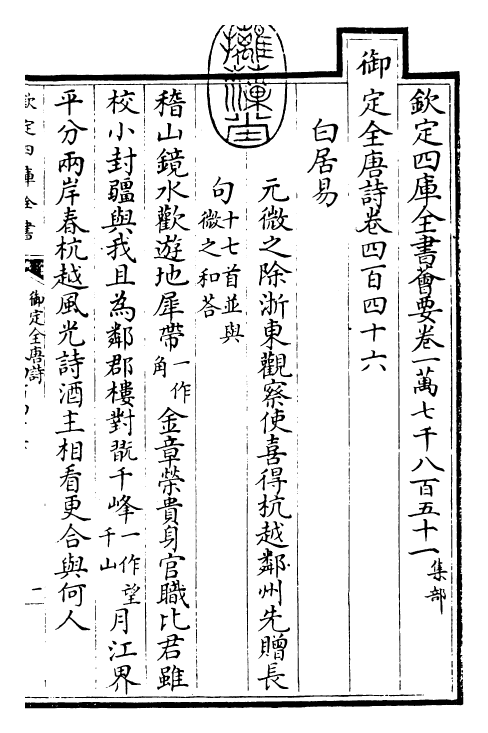 欽定四庫全書薈要卷一萬七千八百五十一集部
御定全唐詩卷四百四十六
白居易
元微之除浙東觀察使喜得杭越鄰州先贈長
句十七首並與微之和荅
稽山鏡水歡遊地犀帶一作角金章榮貴身官職比君雖
校小封疆與我且為鄰郡樓對翫千峰一作望千山月江界
平分兩岸春杭越風光詩酒主相看更合與何人
欽定四庫全書
御定全唐詩
二